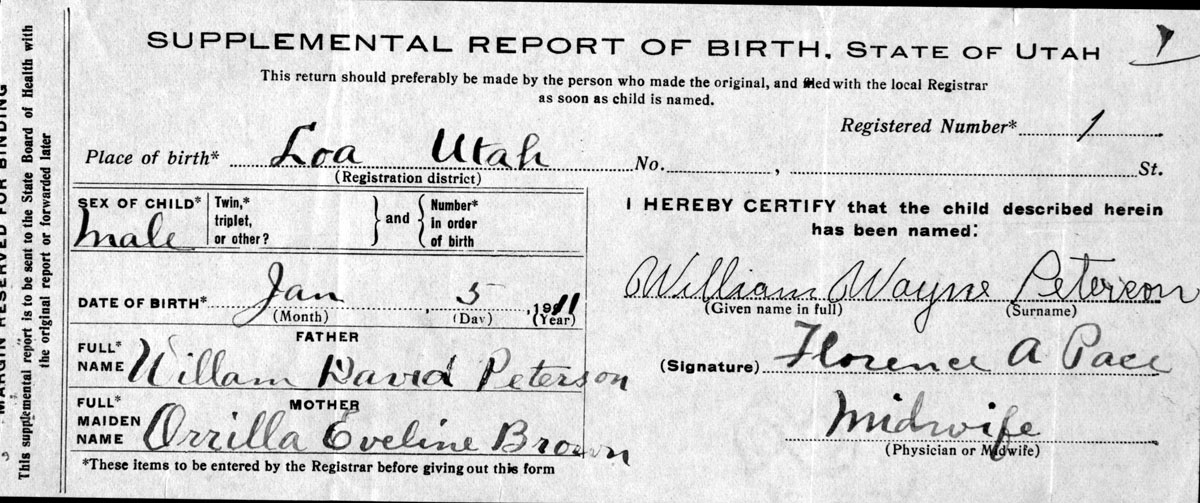 MARGIN RESERVED FOR BINDING
This supplemental report is to be sent to the State Board of Health with
the original report or forwarded later
SUPPLEMENTAL REPORT OF BIRTH, STATE OF UTAH
This return should preferably be made by the person who made the original, and filed with the local Registrar
as soon as child is named.
Registered Number* 1
Place of birth* Loa Utah No. , St.
(Registration district)
SEX OF CHILD* male
Twin,* triplet, or other?
and
Number* in order of birth
DATE OF BIRTH* Jan 5, 1911
(Month) (Day) (Year)
FATHER
FULL* NAME Willam David Peterson
MOTHER
FULL* MAIDEN NAME Orrilla Eveline Brown
*These items to be entered by the Registrar before giving out this form
I HEREBY CERTIFY that the child described herein
has been named:
William Wayne Peterson
(Given name in full) (Surname)
(Signature) Florence A Pace
Midwife
(Physician or Midwife)